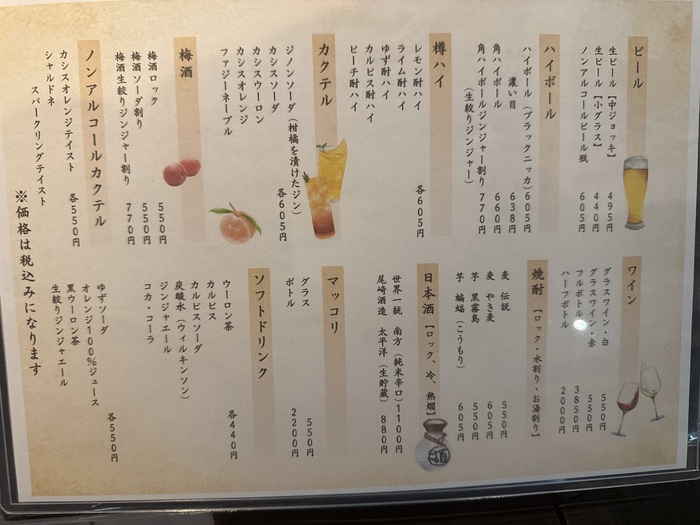 ビール
生ビール【中ジョッキ】 495円
生ビール【小グラス】 440円
ノンアルコールビール瓶 605円
ハイボール
ハイボール(ブラックニッカ) 605円
濃い目 638円
角ハイボール 660円
角ハイボールジンジャー割り 770円
(生絞りジンジャー)
樽ハイ
レモン酎ハイ
ライム酎ハイ
ゆず酎ハイ
カルピス酎ハイ
ピーチ酎ハイ
各605円
カクテル
ジノンソーダ(柑橘を漬けたジン)
カシスソーダ
カシスウーロン
カシスオレンジ
ファジーネーブル
各605円
梅酒
梅酒ロック 550円
梅酒ソーダ割り 550円
梅酒生絞りジンジャー割り 770円
ノンアルコールカクテル
カシスオレンジテイスト
シャルドネ
スパークリングテイスト
各550円
ワイン
グラスワイン・白 550円
グラスワイン・赤 550円
フルボトル 3850円
ハーフボトル 2000円
焼酎【ロック・水割り・お湯割り】
麦 伝説 550円
麦 やき麦 605円
芋 黒霧島 550円
芋 蝙蝠(こうもり) 605円
日本酒【ロック、冷、熱燗】
世界一統 南方(純米辛口) 1100円
尾崎酒造 太平洋(生貯蔵) 880円
マッコリ
グラス 550円
ボトル 2200円
ソフトドリンク
ウーロン茶
カルピス
カルピスソーダ
炭酸水(ウィルキンソン)
ジンジャエール
コカ・コーラ
各440円
ゆずソーダ
オレンジ100%ジュース
黒ウーロン茶
生絞りジンジャエール
各550円
※価格は税込みになります